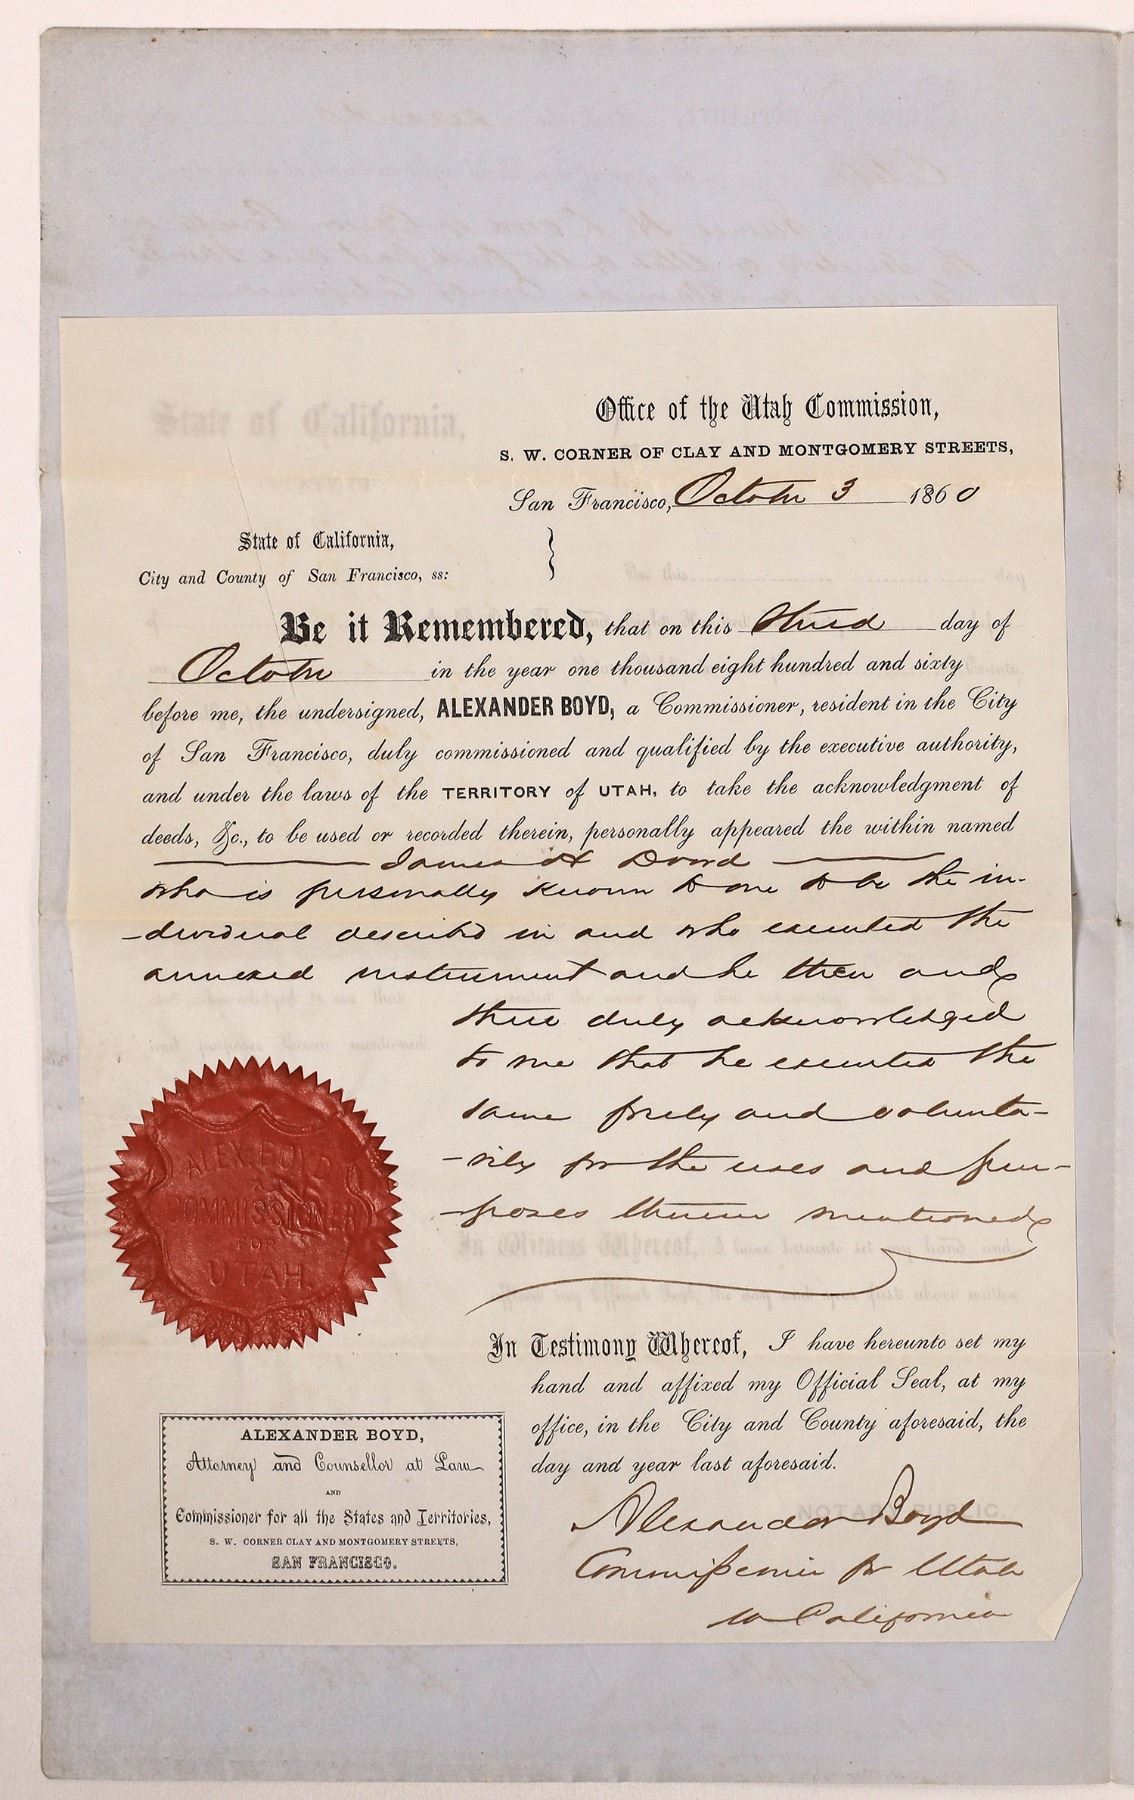 Office of the Utah Commission,
S. W. CORNER OF CLAY AND MONTGOMERY STREETS,
San Francisco, October 3 1860
State of California,
City and County of San Francisco, ss:
Be it Remembered, that on this third day of
October in the year one thousand eight hundred and sixty
before me, the undersigned, ALEXANDER BOYD, a Commissioner, resident in the City
of San Francisco, duly commissioned and qualified by the executive authority,
and under the laws of the TERRITORY of UTAH, to take the acknowledgment of
deeds, &c., to be used or recorded therein, personally appeared the within named
James H
who is personally known to me to be the in-
-dividual described in and who executed the
annexed instrument and he then and
there duly acknowledged
to me that he executed the
same freely and volunta-
-rily for the uses and pur-
-poses therein mentioned
ALEX. BOYD
COMMISSIONER
FOR
UTAH.
In Testimony Whereof, I have hereunto set my
hand and affixed my Official Seal, at my
office, in the City and County aforesaid, the
day and year last aforesaid.
Alexander Boyd
Commissioner for Utah
in California
ALEXANDER BOYD,
Attorney and Counsellor at Law
AND
Commissioner for all the States and Territories,
S. W. CORNER CLAY AND MONTGOMERY STREETS,
SAN FRANCISCO.
State of California,
On this day
In Witness Whereof, I have hereunto set my hand and
NOTARY PUBLIC.